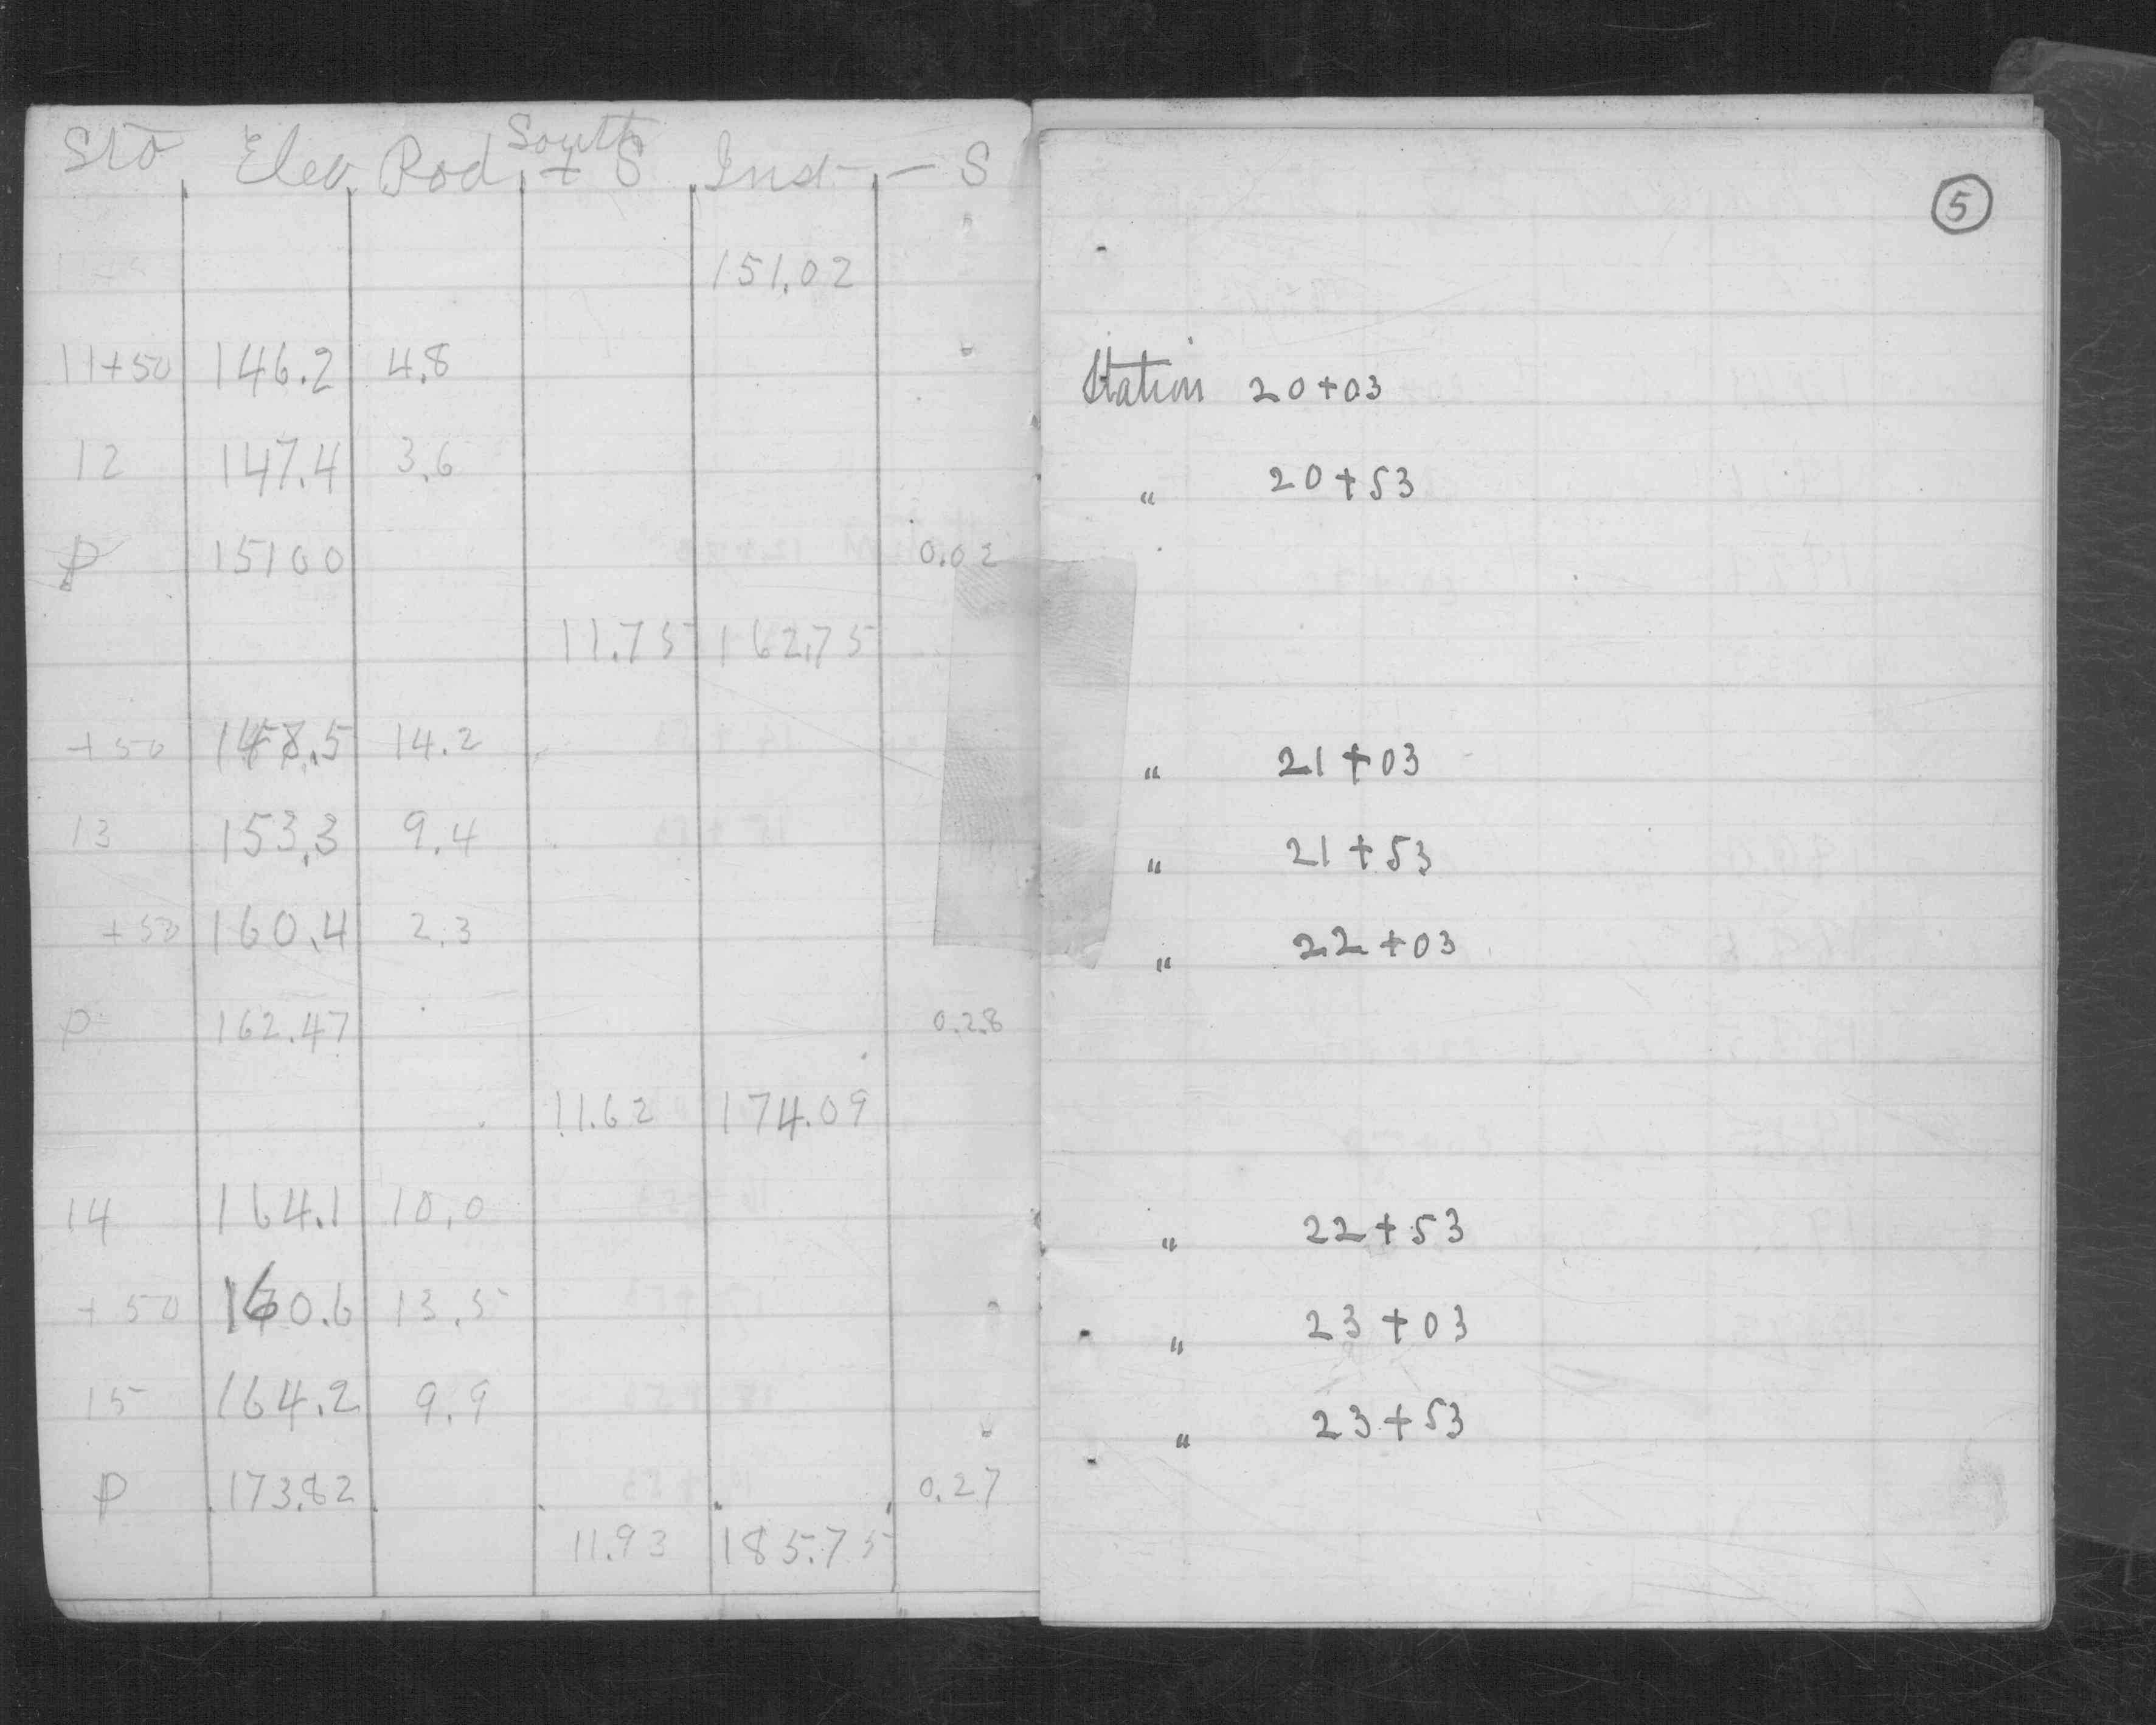 South
Sta Elev Rod + S Inst - S
151.02
11+50 146.2 4.8
12 147.4 3.6
P 151 00 0.02
11.75 162.75
+50 148.5 14.2
13 153.3 9.4
+50 160.4 2.3
P 162.47 0.28
11.62 174.09
14 164.1 10.0
+50 160.6 13.5
15 164.2 9.9
P 173.82 0.27
11.93 185.75
5
Station 20+03
" 20+53
" 21+03
" 21+53
" 22+03
" 22+53
" 23+03
" 23+53